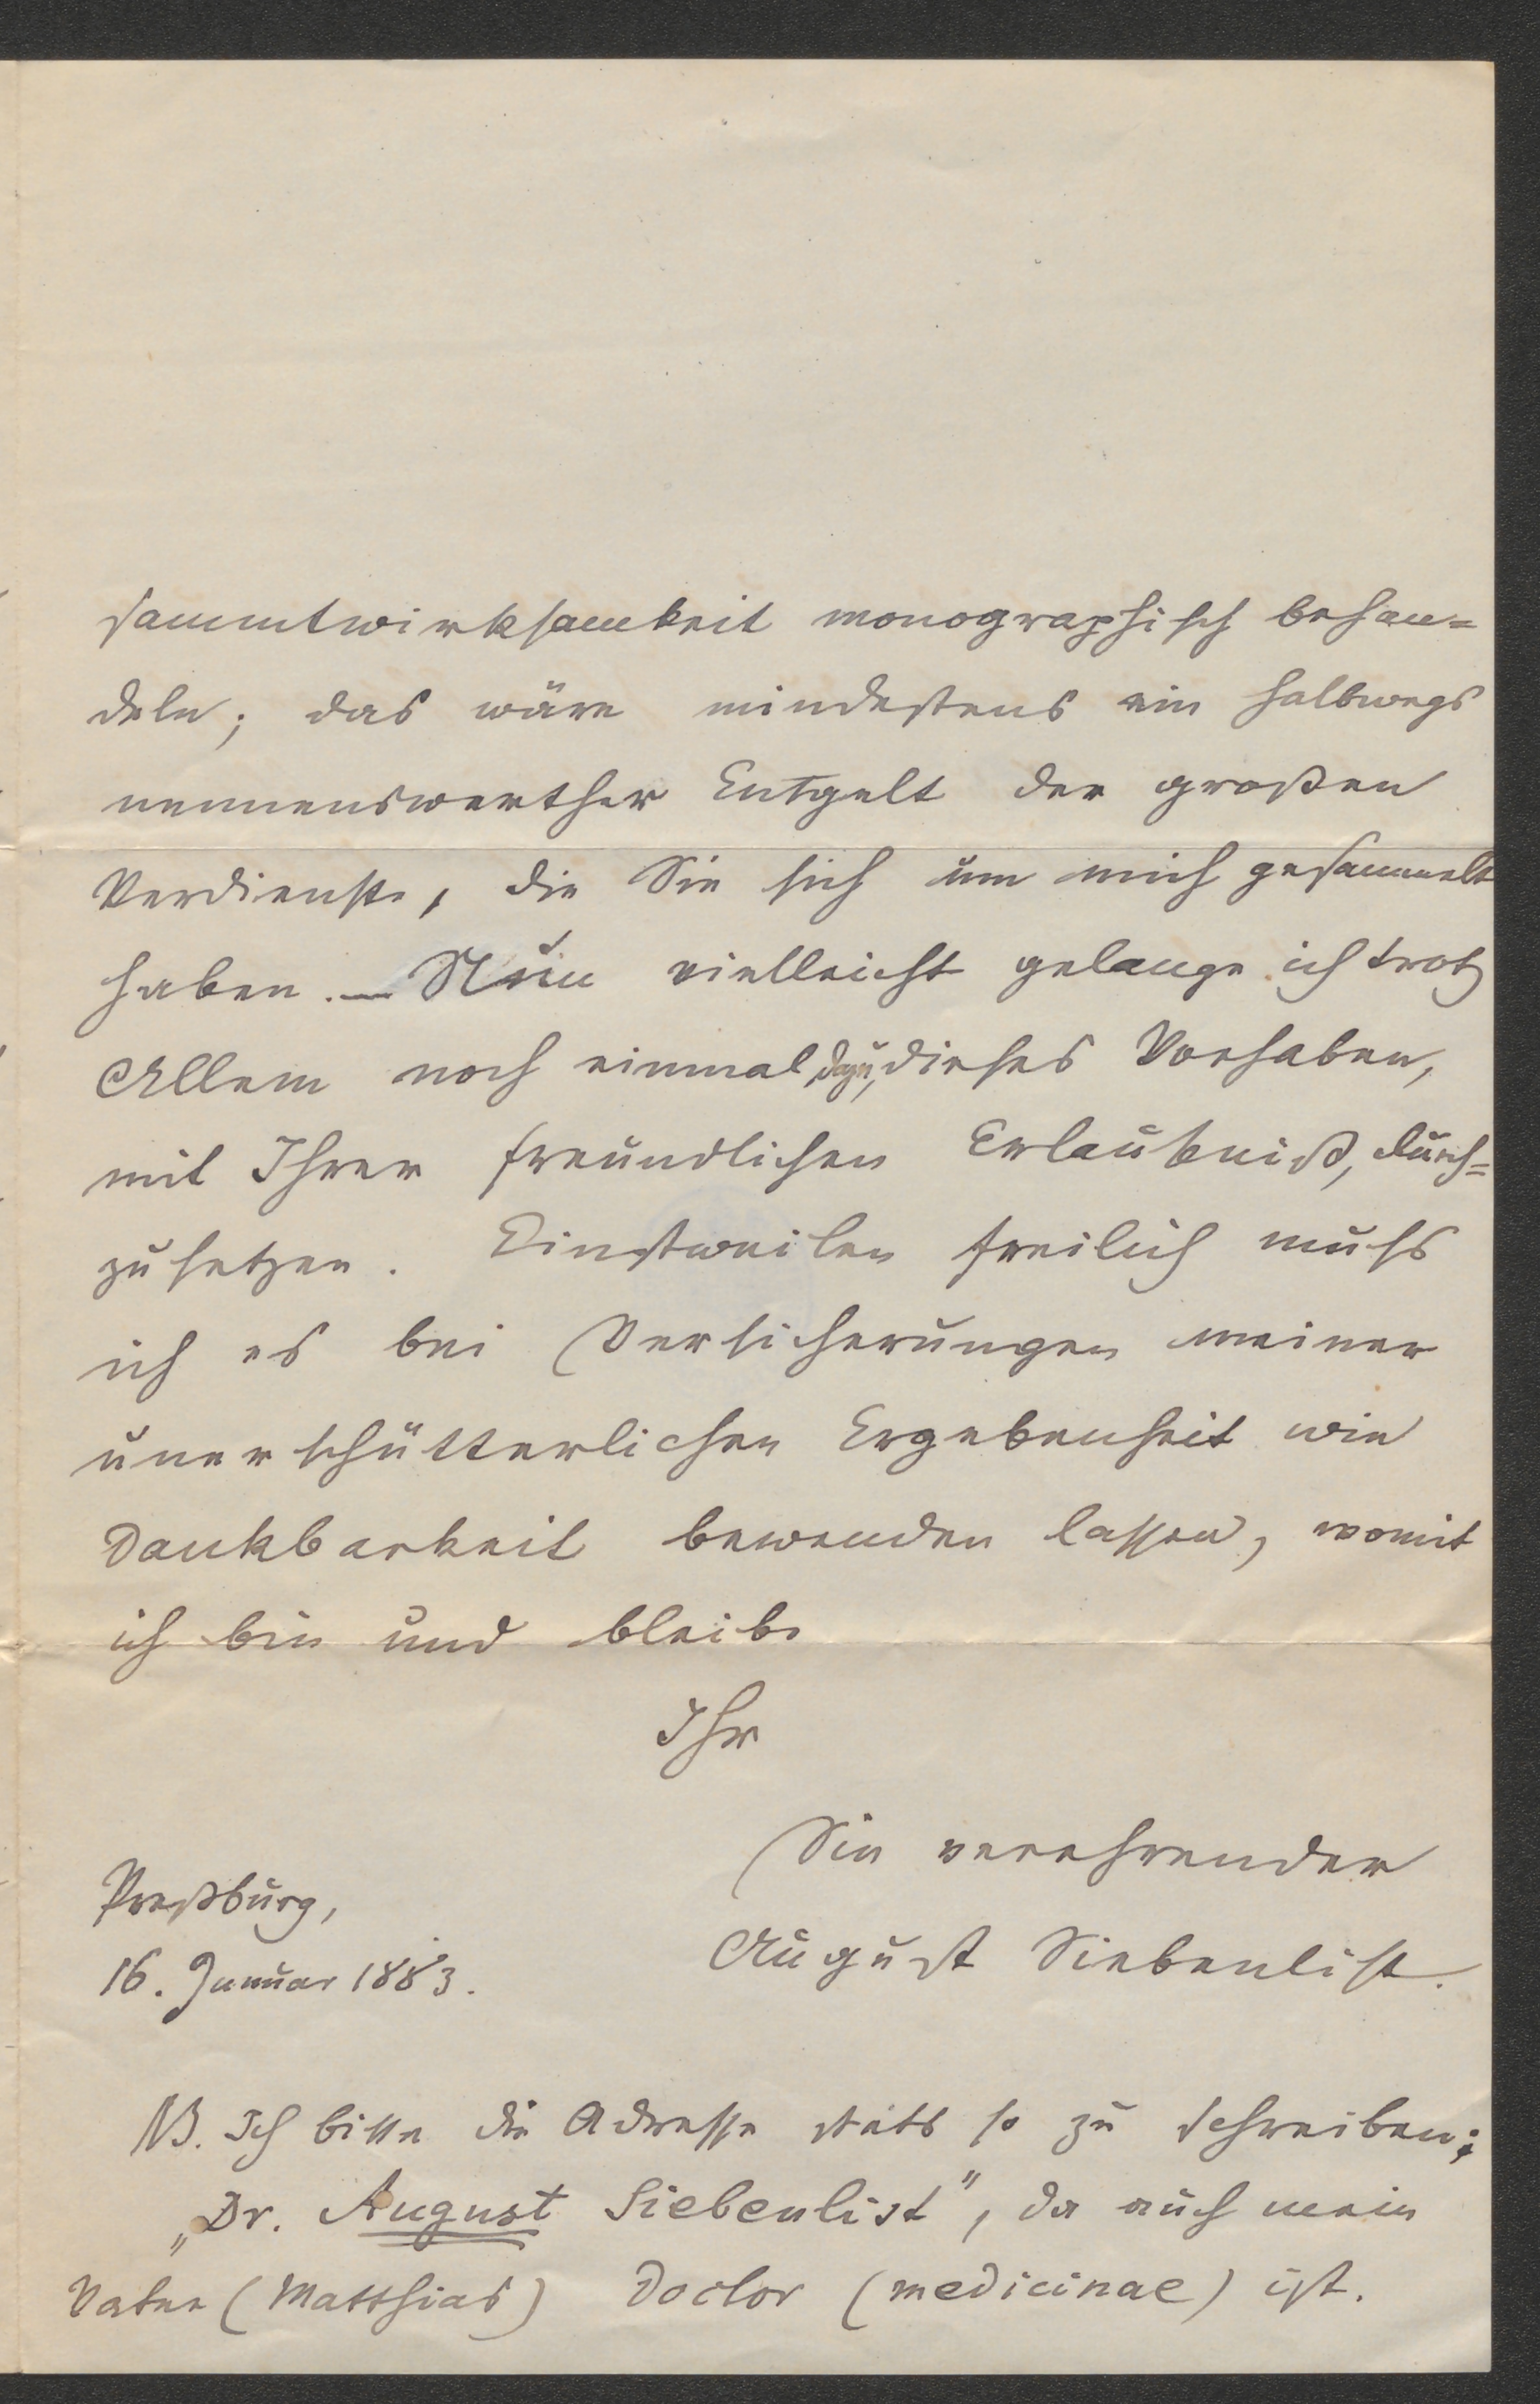 sammtwirksamkeit monographisch behan=
deln; das wäre mindestens ein halbwegs
nennenswerther Entgelt der großen
Verdienste, die Sie sich um mich gesammelt
haben. — Nun vielleicht gelange ich trotz
Allem noch einmal dazu, dieses Vorhaben,
mit Ihrer freundlichen Erlaubniß, durch=
zusetzen. Einstweilen freilich muss
ich es bei Versicherungen meiner
unerschütterlichen Ergebenheit wie
Dankbarkeit bewenden lassen, womit
ich bin und bleibe
Ihr
Sie verehrender
August Siebenlist.
Preßburg,
16. Januar 1883.
NB. Ich bitte die Adresse stäts so zu schreiben:
„Dr. August Siebenlist", da auch mein
Vater (Matthias) Doctor (medicinae) ist.